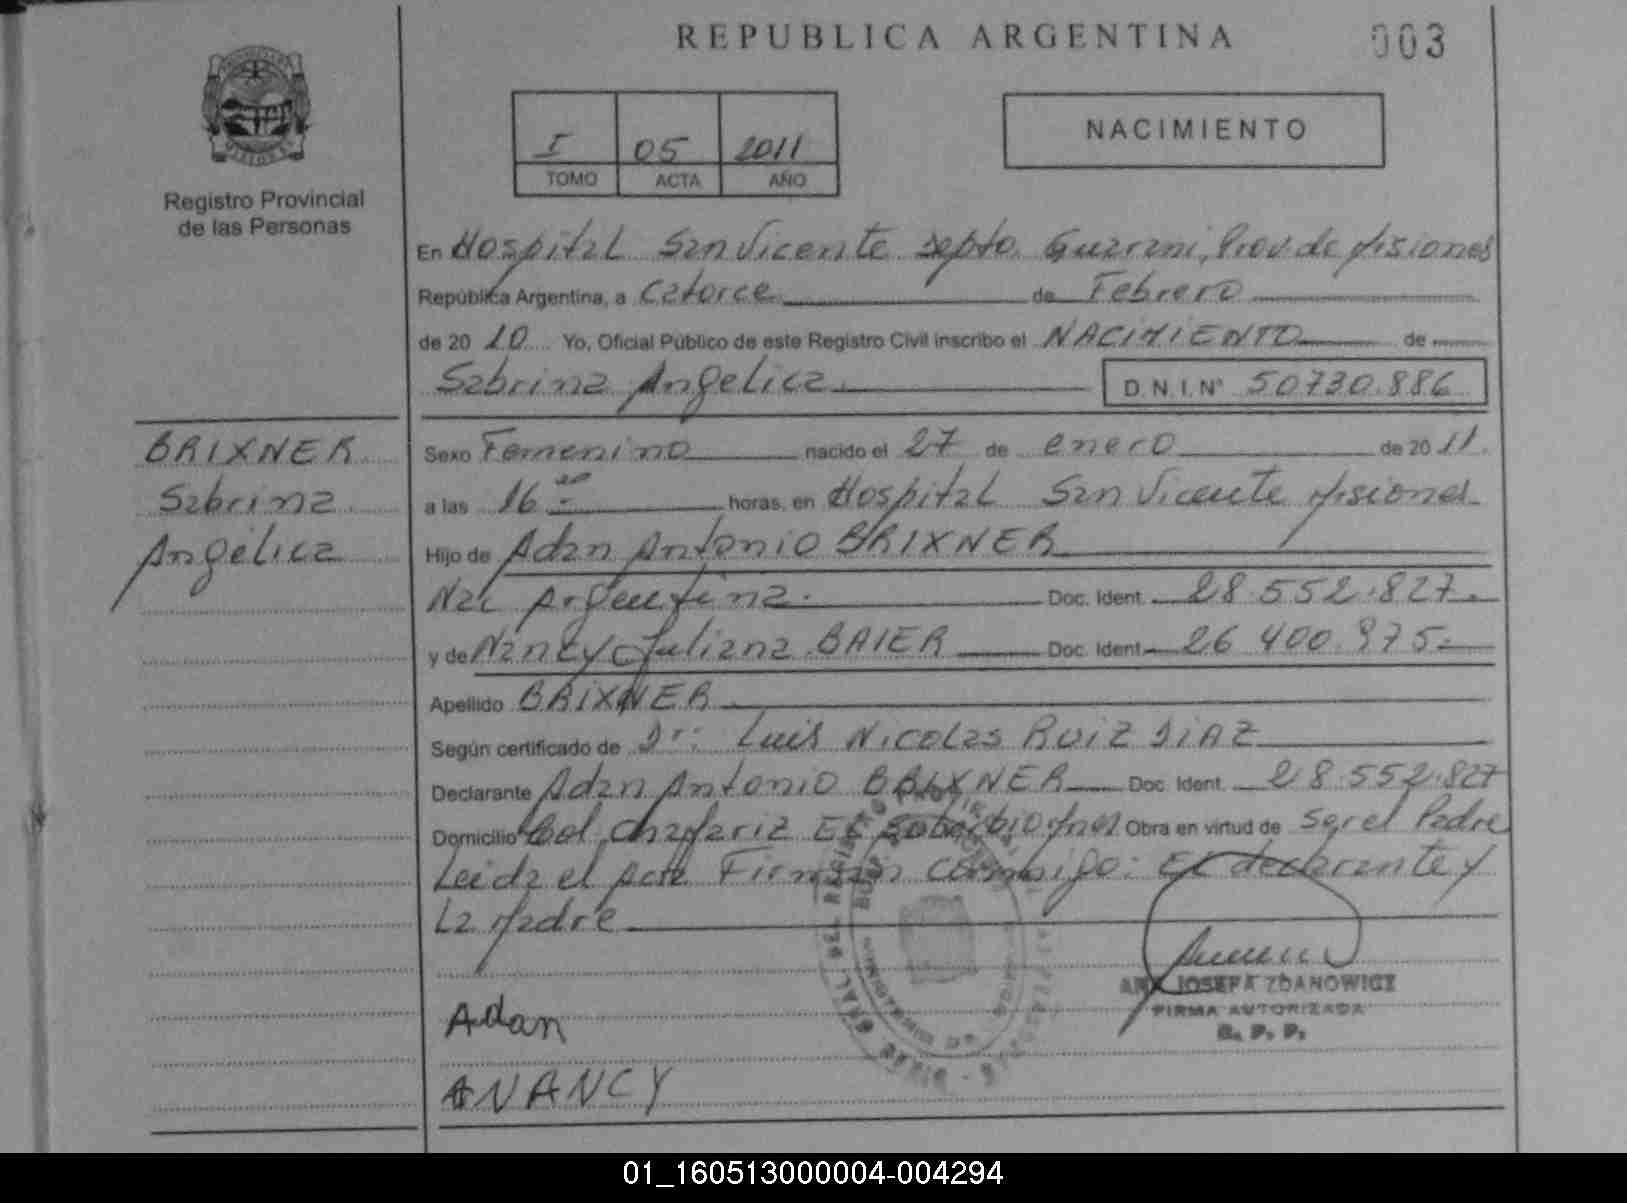 REPUBLICA ARGENTINA
003
Registro Provincial
de las Personas
I 05 2011
TOMO ACTA AÑO
NACIMIENTO
En Hospital San Vicente Depto. Guarani, Prov. de Misiones
República Argentina, a Catorce de Febrero
de 20 10 Yo, Oficial Público de este Registro Civil inscribo el NACIMIENTO de
Sabrina Angelica D.N.I. Nº 50730.886
BRIXNER
Sabrina
Angelica
Sexo Femenino nacido el 27 de enero de 20 11.
a las 16 horas, en Hospital San Vicente Misiones
Hijo de Adan Antonio BRIXNER
Nac Argentina. Doc. Ident. 28.552.827.
y de Nancy Juliana BAIER Doc. Ident. 26 400.975
Apellido BRIXNER
Según certificado de Dr: Luis Nicolas RUIZ DIAZ
Declarante Adan Antonio BRIXNER Doc. Ident. 28.552.827
Domicilio Col. Chafariz El Soberbio Mnes Obra en virtud de Ser el Padre
Leida el Acta Firman conmigo: El declarante y
La Madre
Adan
NANCY
ANA JOSEFA ZDANOWICZ
FIRMA AUTORIZADA
R. P. P.
01_160513000004-004294